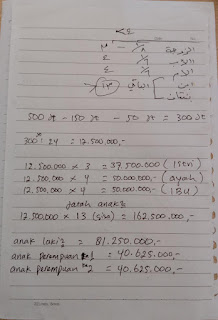 ٢٤
الزوجة ١/٨ ٣
الاب ١/٦ ٤
الام ١/٦ ٤
ابن
بنتان الباقي ١٣
500 jt - 150 jt - 50 jt = 300 jt
300 jt : 24 = 12.500.000,-
12.500.000 x 3 = 37.500.000 (Istri)
12.500.000 x 4 = 50.000.000,- (ayah)
12.500.000 x 4 = 50.000.000,- (IBU)
Jatah anak²
12.500.000 x 13 (sisa) = 162.500.000,-
anak laki² = 81.250.000,-
anak perempuan 1 = 40.625.000,-
anak perempuan 2 = 40.625.000,-